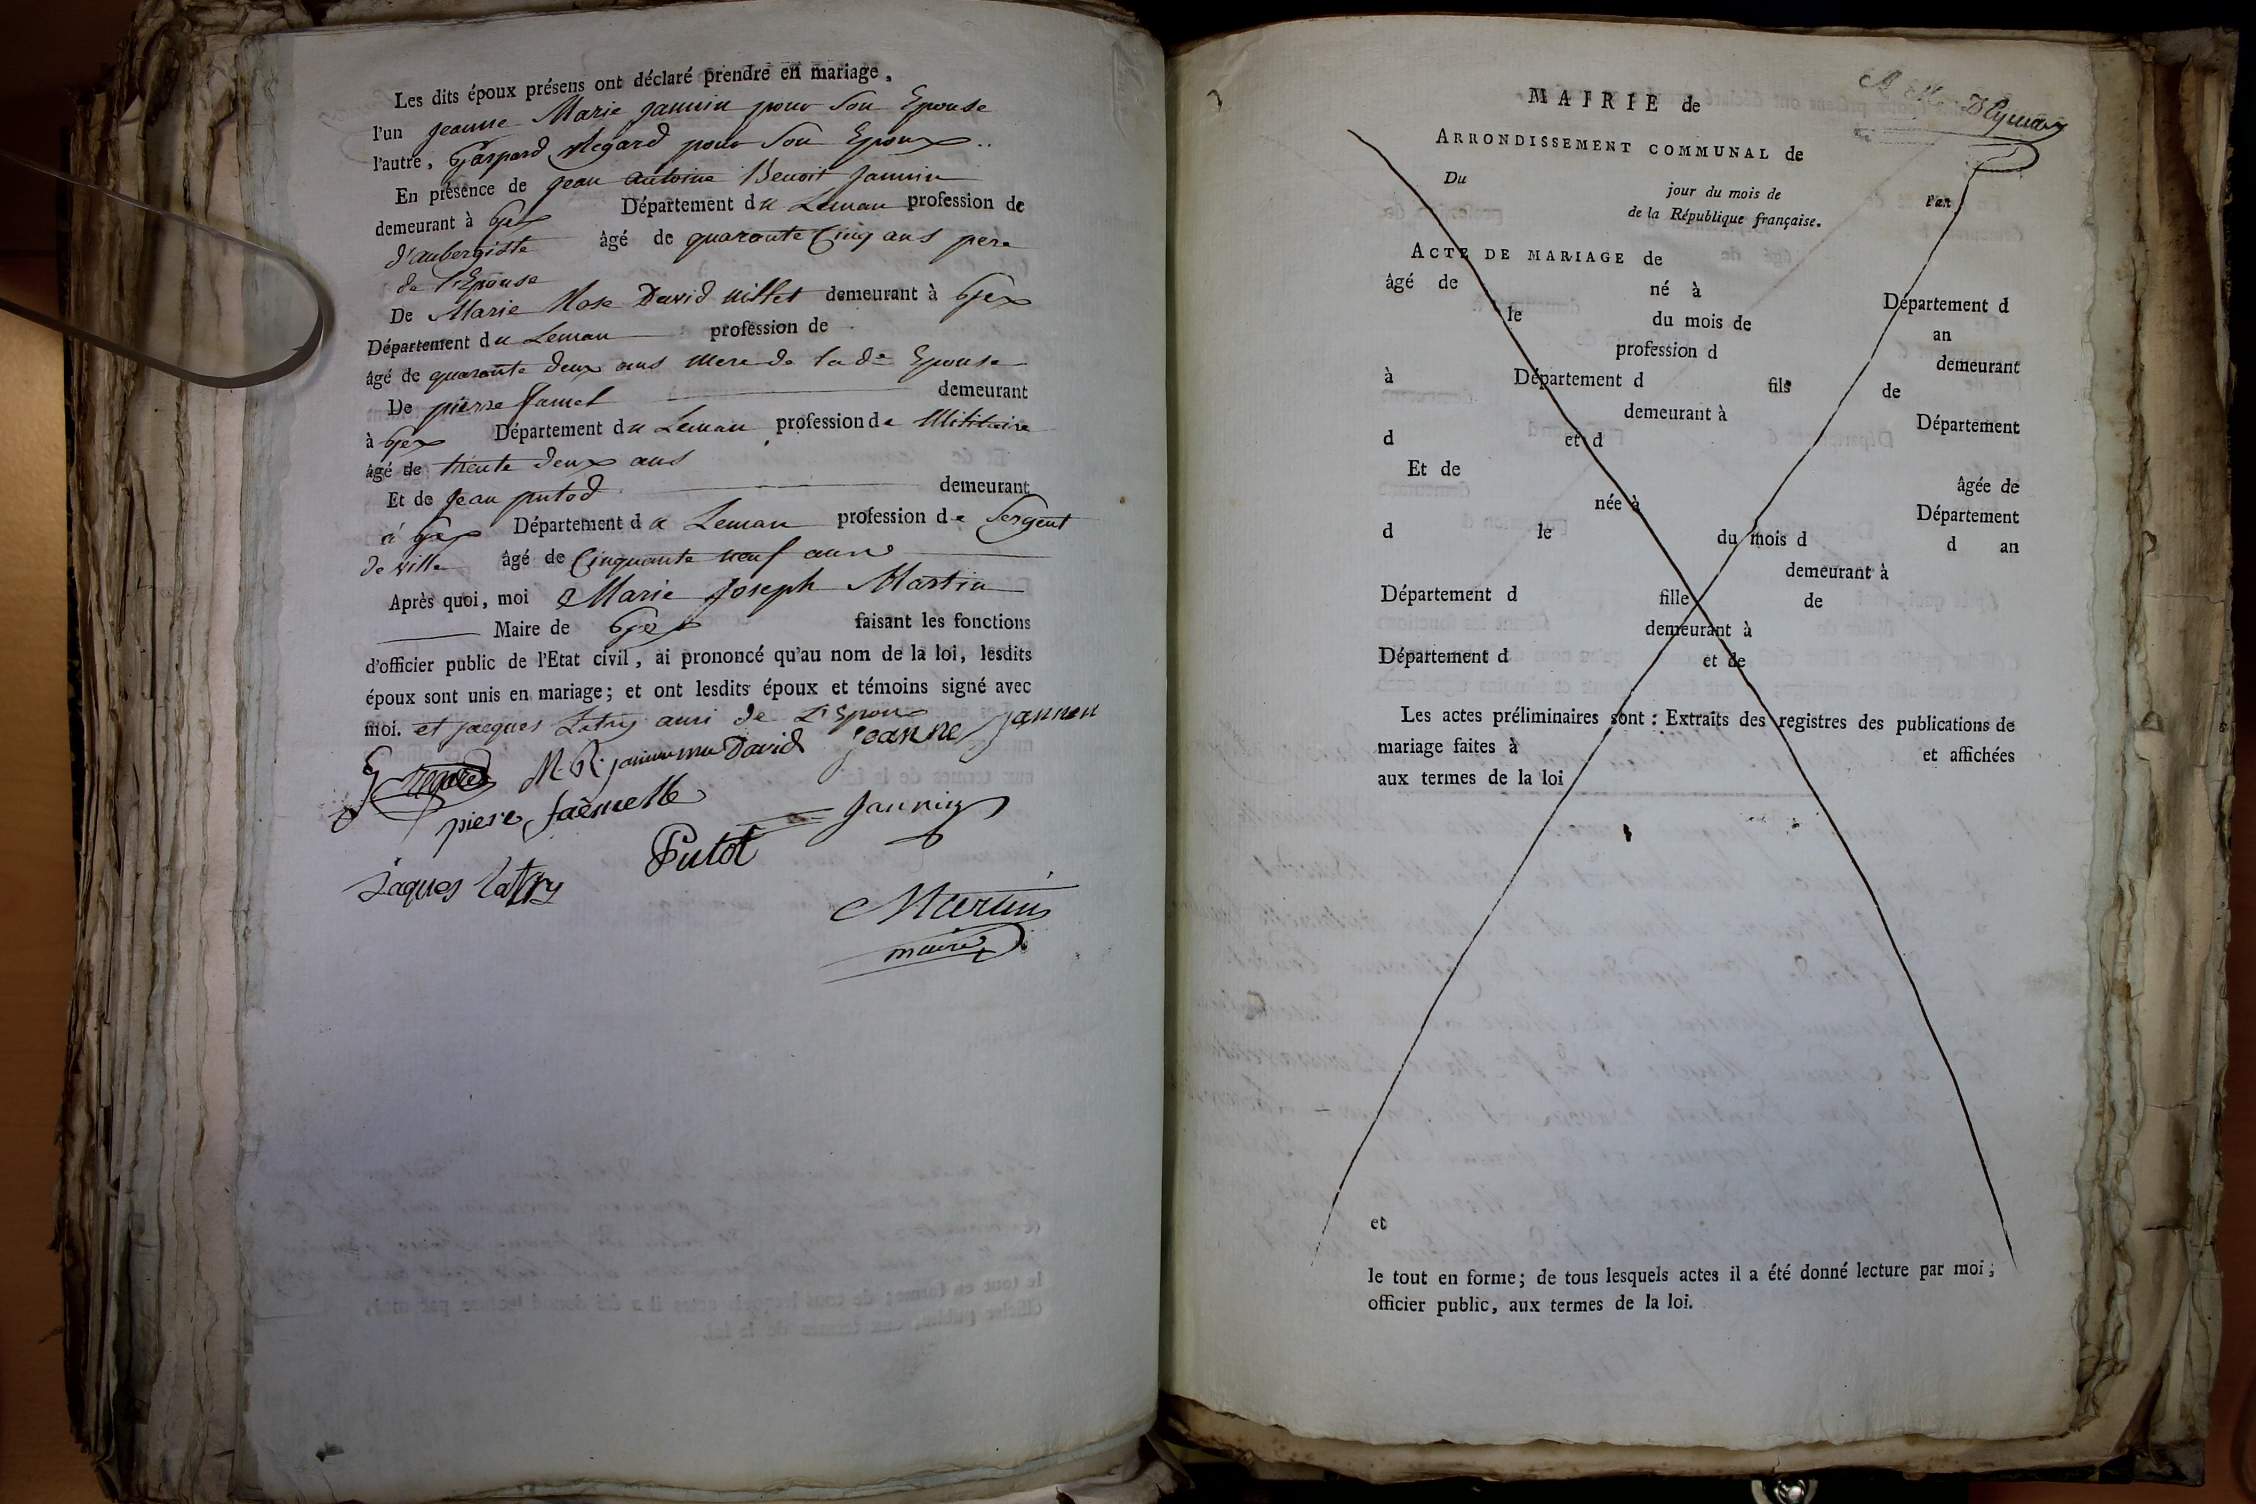 Les dits époux présens ont déclaré prendre en mariage,
l'un jeanne Marie jannin pour Son Epouse
l'autre, Gaspard Regard pour Son Epoux
En présence de jean antoine Benoit jannin
demeurant à Gex Département du Leman profession de
d'aubergiste âgé de quarante Cinq ans pere
de l'Epouse
De Marie Rose David Millet demeurant à Gex
Département du Leman profession de
âgé de quarante deux ans mere de la de Epouse
De pierre Jamel demeurant
à Gex Département du Leman profession de Militaire
âgé de trente deux ans
Et de jean putod demeurant
à Gex Département du Leman profession de Sergent
de ville âgé de Cinquante neuf ans
Après quoi, moi Marie Joseph Martin
Maire de Gex faisant les fonctions
d'officier public de l'Etat civil, ai prononcé qu'au nom de la loi, lesdits
époux sont unis en mariage; et ont lesdits époux et témoins signé avec
moi. et jacques Latry ami de L'Epoux
G Regard M. R. David jeanne jannin
piere jaèmelle jannin
Putot
jaques latry
Martin
maire
MAIRIE de
ARRONDISSEMENT COMMUNAL de
Du jour du mois de l'an
de la République française.
ACTE DE MARIAGE de
âgé de né à Département d
le du mois de an
profession d demeurant
à Département d fils de
demeurant à Département
d et d
Et de âgée de
née à Département
d le du mois d d an
demeurant à
Département d fille de
demeurant à
Département d et de
Les actes préliminaires sont : Extraits des registres des publications de
mariage faites à et affichées
aux termes de la loi
et
le tout en forme; de tous lesquels actes il a été donné lecture par moi;
officier public, aux termes de la loi.